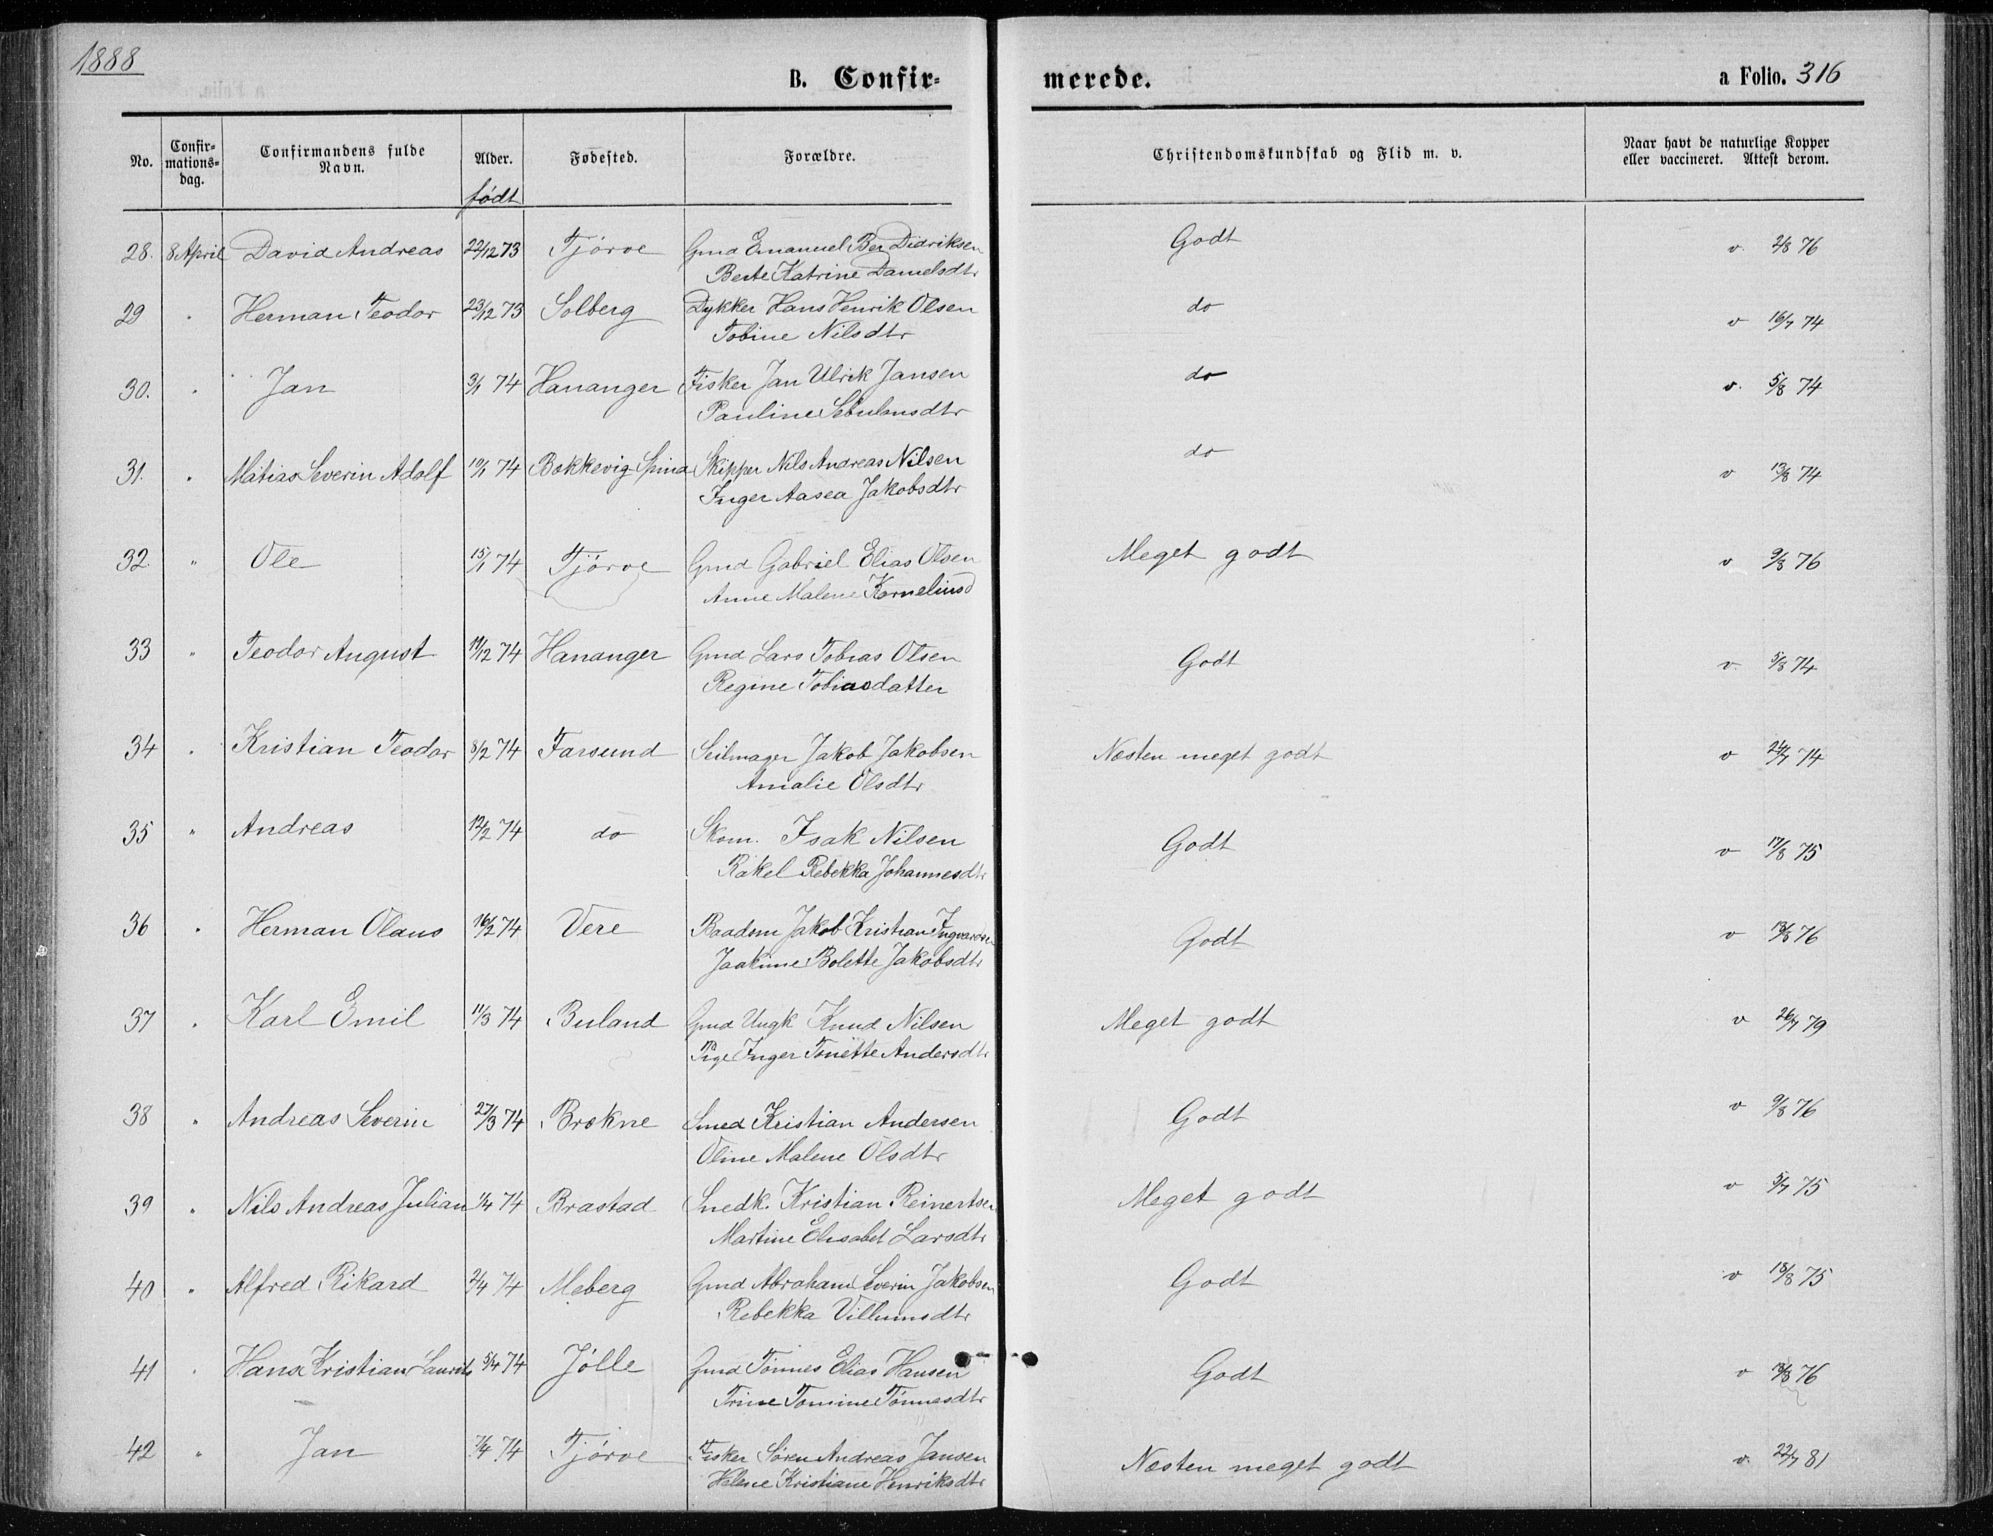 1888
B. Confir-
merede.
a Folio. 316
No.
Confir-
mations-
dag.
Confirmandens fulde
Navn.
Alder.
født
Fødested.
Forældre.
Christendomskundskab og Flid m. v.
Naar havt de naturlige Kopper
eller vaccineret. Attest derom.
28. 8 April David Andreas 22/12 73 Tjørve Gmd Emanuel Ber Didriksen Godt v. 2/8 76
Berte Katrine Danielsdtr
29 " Herman Teodor 23/12 73 Solberg Dykker Hans Henrik Olsen do v 16/7 74
Tobine Nilsdtr
30. " Jan 3/1 74 Hananger Fisker Jan Ulrik Jansen do v. 5/8 74
Pauline Sebulonsdtr
31. " Matias Severin Adolf 10/1 74 Bokkevig Spind Skipper Nils Andreas Nilsen do v 13/8 74
Inger Aasea Jakobsdtr
32 " Ole 15/1 74 Tjørve Gmd Gabriel Elias Olsen Meget godt v 9/8 76
Anne Malene Kornelinsd
33 " Teodor August 19/12 74 Hananger Gmd Lars Tobias Olsen Godt v. 5/8 74
Regine Tobiasdatter
34 " Kristian Teodor 8/2 74 Farsund Seilmager Jakob Jakobsen Næsten meget godt v 24/7 74
Amalie Olsdtr
35 " Andreas 12/2 74 do Skom. Isak Nilsen Godt v 17/8 75
Rakel Rebekka Johannesdtr
36 " Herman Olaus 16/2 74 Vere Baadsm Jakob Kristian Ingvardsen Godt v 13/8 76
Jaakime Bolette Jakobsdtr
37 " Karl Emil 11/3 74 Buland Gmd Ungk Knud Nilsen Meget godt v 26/7 79
Pige Inger Tonette Andersdtr
38 " Andreas Severin 27/3 74 Brokne Smed Kristian Andersen Godt v 9/8 76
Oline Malene Olsdtr
39 " Nils Andreas Julian 1/4 74 Brastad Snedk. Kristian Reinertsen Meget godt v 5/7 75
Martine Elisabet Larsdtr
40 " Alfred Rikard 2/4 74 Meberg Gmd Abraham Severin Jakobsen Godt v 18/8 75
Rebekka Villumsdtr
41 " Hans Kristian Laurits 5/4 74 Jølle Gmd Tønnes Elias Hansen Godt v 13/8 76
Trine Tomine Tønnesdtr
42 " Jan 7/4 74 Tjørve Fisker Søren Andreas Jansen Næsten meget godt v. 22/7 81
Helene Kristiane Henriksdtr